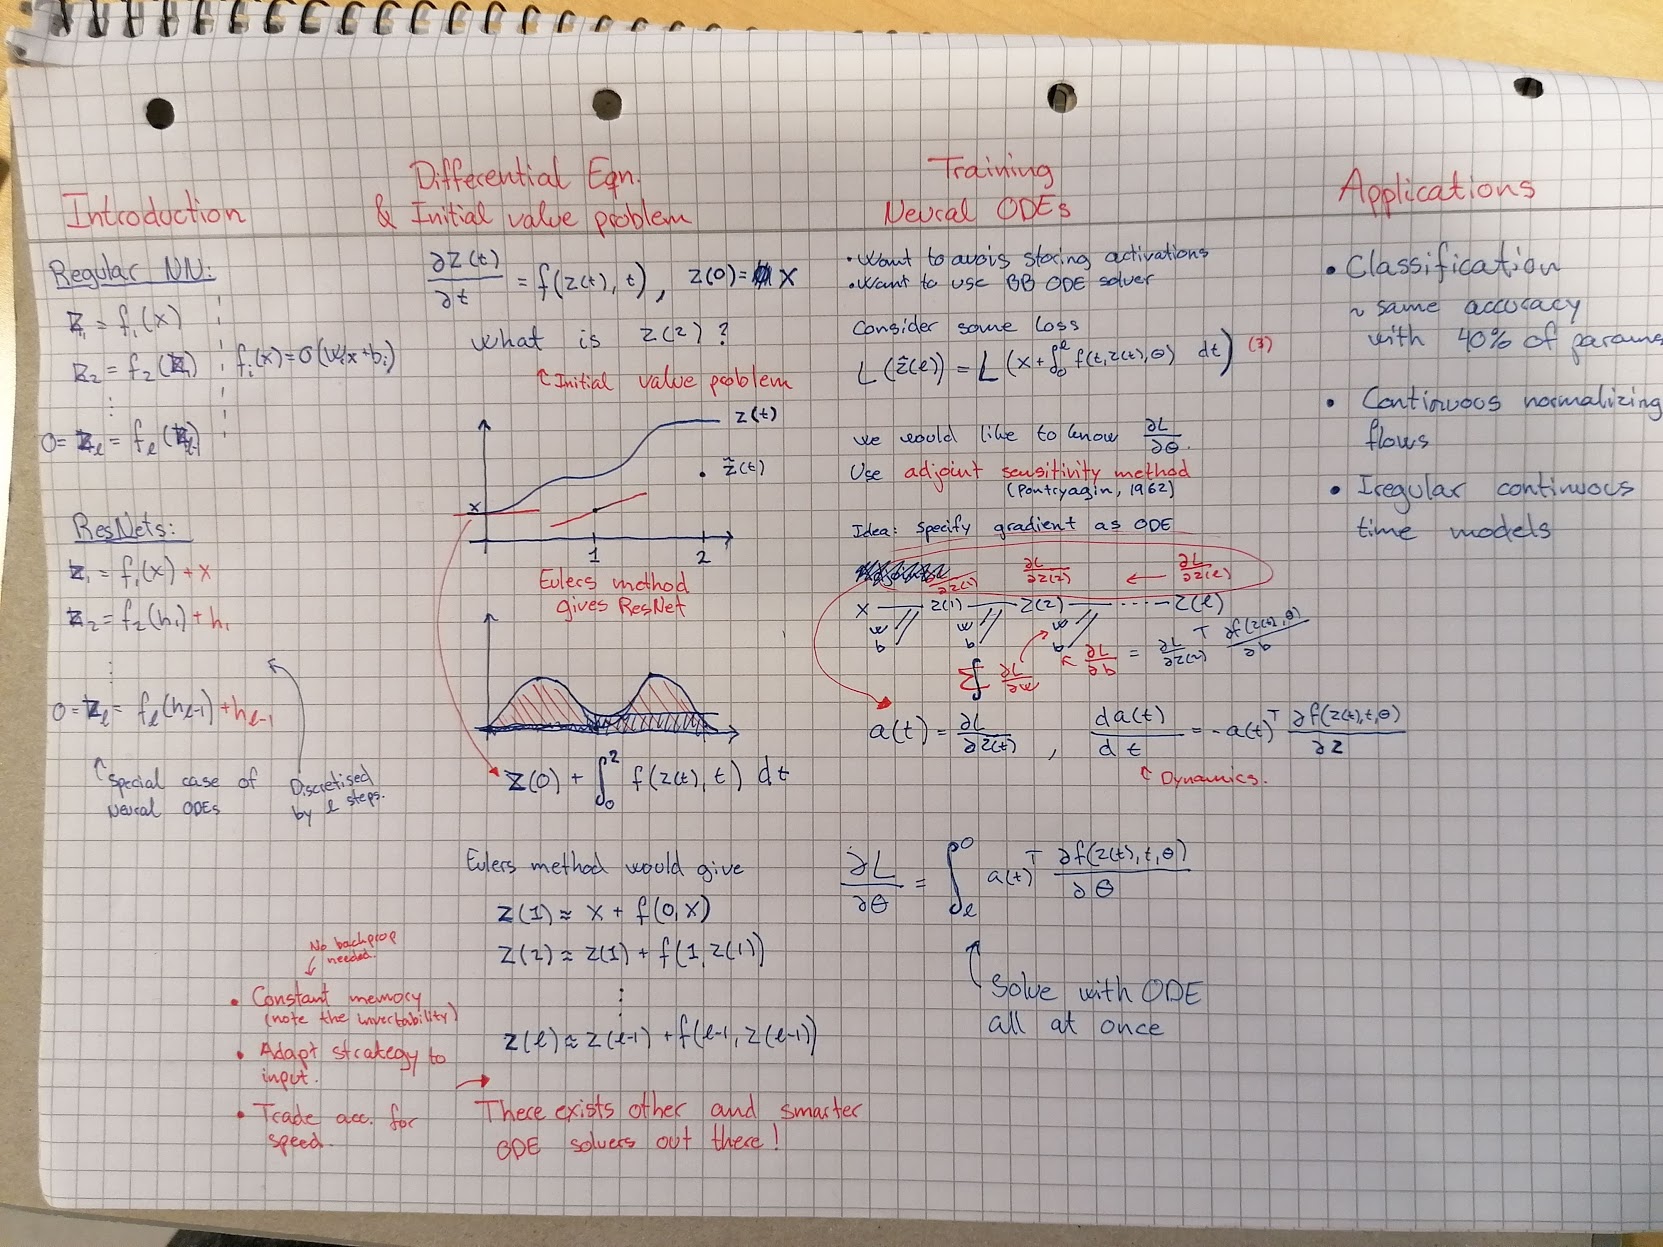 Introduction
Regular NN:
z₁ = f₁(x)
z₂ = f₂(z₁)
⋮
fᵢ(x) = σ(Wᵢx + bᵢ)
O = z_ℓ = f_ℓ(
ResNets:
z₁ = f₁(x) + x
z₂ = f₂(h₁) + h₁
⋮
O = z_ℓ = f_ℓ(h_ℓ-1) + h_ℓ-1
Special case of
Neural ODEs
Discretised
by ℓ steps.
No backprop
needed.
• Constant memory
(note the invertability)
• Adapt strategy to
input.
• Trade acc. for
speed.
Differential Eqn.
& Initial value problem
∂z(t)/∂t = f(z(t), t), z(0) = x
What is z(2)?
Initial value problem
z(t)
ẑ(t)
x
1
2
Eulers method
gives ResNet
z(0) + ∫₀² f(z(t), t) dt
Eulers method would give
z(1) ≈ x + f(0, x)
z(2) ≈ z(1) + f(1, z(1))
⋮
z(ℓ) ≈ z(ℓ-1) + f(ℓ-1, z(ℓ-1))
→ There exists other and smarter
ODE solvers out there!
Training
Neural ODEs
• Want to avois storing activations
• Want to use BB ODE solver
Consider some loss
L(ẑ(ℓ)) = L(x + ∫₀^ℓ f(t, z(t), θ) dt) (3)
we would like to know ∂L/∂θ.
Use adjoint sensitivity method
(Pontryagin, 1962)
Idea: specify gradient as ODE
∂L/∂z(2) ← ∂L/∂z(ℓ)
x — z(1) — z(2) — ⋯ — z(ℓ)
w w w
b b b
∂L/∂w
∂L/∂b = ∂L/∂z(2)ᵀ ∂f(z(2), θ)/∂b
a(t) = ∂L/∂z(t), da(t)/dt = -a(t)ᵀ ∂f(z(t), t, θ)/∂z
Dynamics.
∂L/∂θ = ∫_ℓ⁰ a(t)ᵀ ∂f(z(t), t, θ)/∂θ
Solve with ODE
all at once
Applications
• Classification
~ same accuracy
with 40% of params
• Continuous normalizing
flows
• Iregular continuous
time models